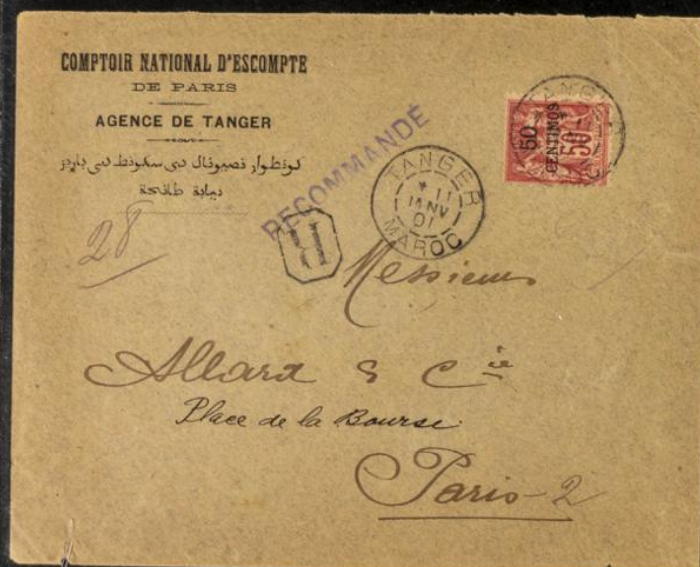 COMPTOIR NATIONAL D'ESCOMPTE
DE PARIS
AGENCE DE TANGER
كونطوار نصيونال دي سكونط دي باريز
نيابة طانجة
RECOMMANDÉ
R
TANGER
11
JANV
01
MAROC
TANGER
50
CENTIMOS
50
28
Messieurs
Allard & Cie
Place de la Bourse
Paris-2